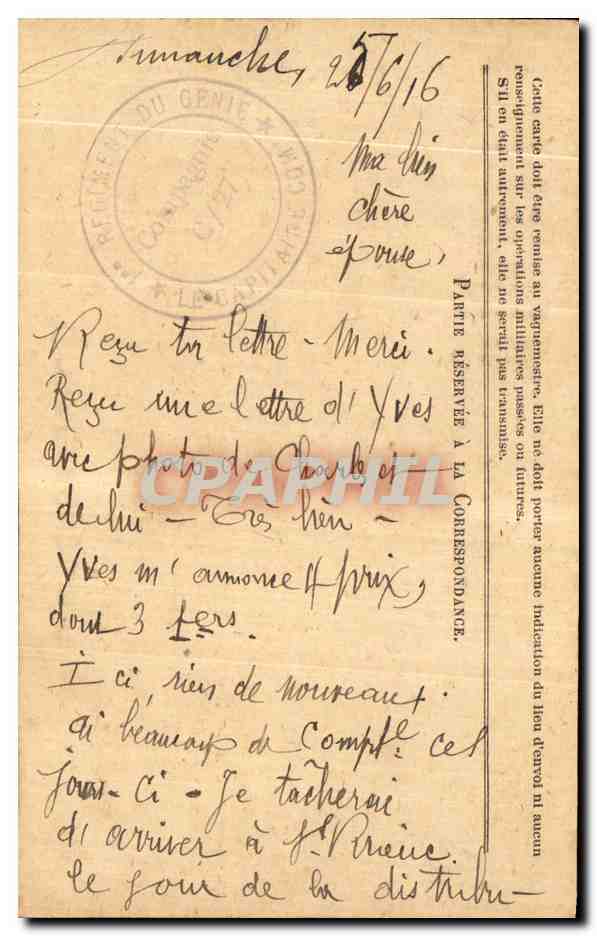 Dimanche, 25/6/16
Ma bien
chère
épouse,
Reçu ta lettre - Merci.
Reçu une lettre d'Yves
avec photo de Charles et
de lui - Très bien -
Yves m'annonce 4 prix,
dont 3 1ers.
Ici, rien de nouveau.
ai beaucoup de Comptté ces
jours-ci - Je tâcherai
d'arriver à St. Brieuc
le jour de la distribu-
REGIMENT DU GENIE
LE CAPITAINE COM
Compagnie
C/27
PARTIE RÉSERVÉE À LA CORRESPONDANCE.
Cette carte doit être remise au vaguemestre. Elle ne doit porter aucune indication du lieu d'envoi ni aucun
renseignement sur les opérations militaires passées ou futures.
S'il en était autrement, elle ne serait pas transmise.
CPAPHIL